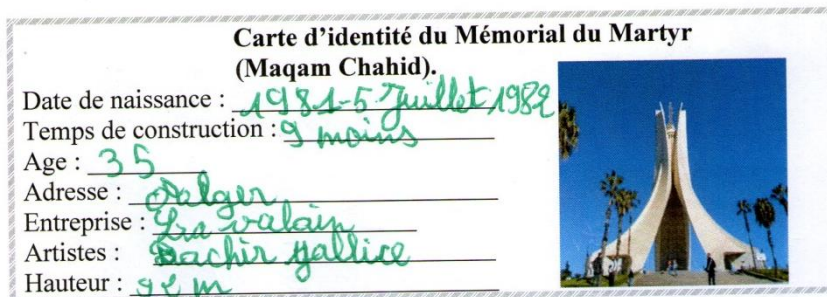 Carte d'identité du Mémorial du Martyr
(Maqam Chahid).
Date de naissance : 1981-5 Juillet 1982
Temps de construction : 9 moins
Age : 35
Adresse :
Entreprise : valain
Artistes : Bachir
Hauteur : 92 m